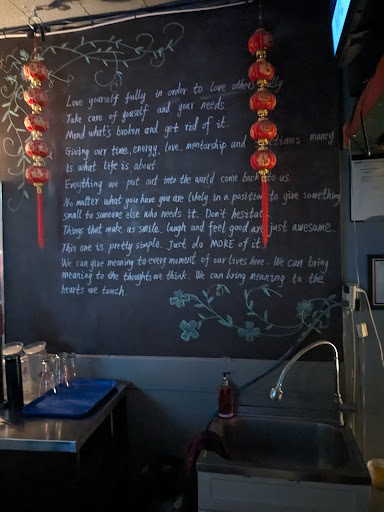 Love yourself fully in order to love others fully
Take care of youself and your needs.
Mend what's broken and get rid of it.
Giving our time, energy, love, mentorship and sometimes money
is what life is about.
Everything we put out into the world come back to us.
No matter what you have you are likely in a position to give something
small to someone else who needs it. Don't hesitate.
Things that make us smile, laugh and feel good are just awesome.
This one is pretty simple. Just do MORE of it.
We can give meaning to every moment of our lives here. We can bring
meaning to the thoughts we think. We can bring meaning to the
hearts we touch.